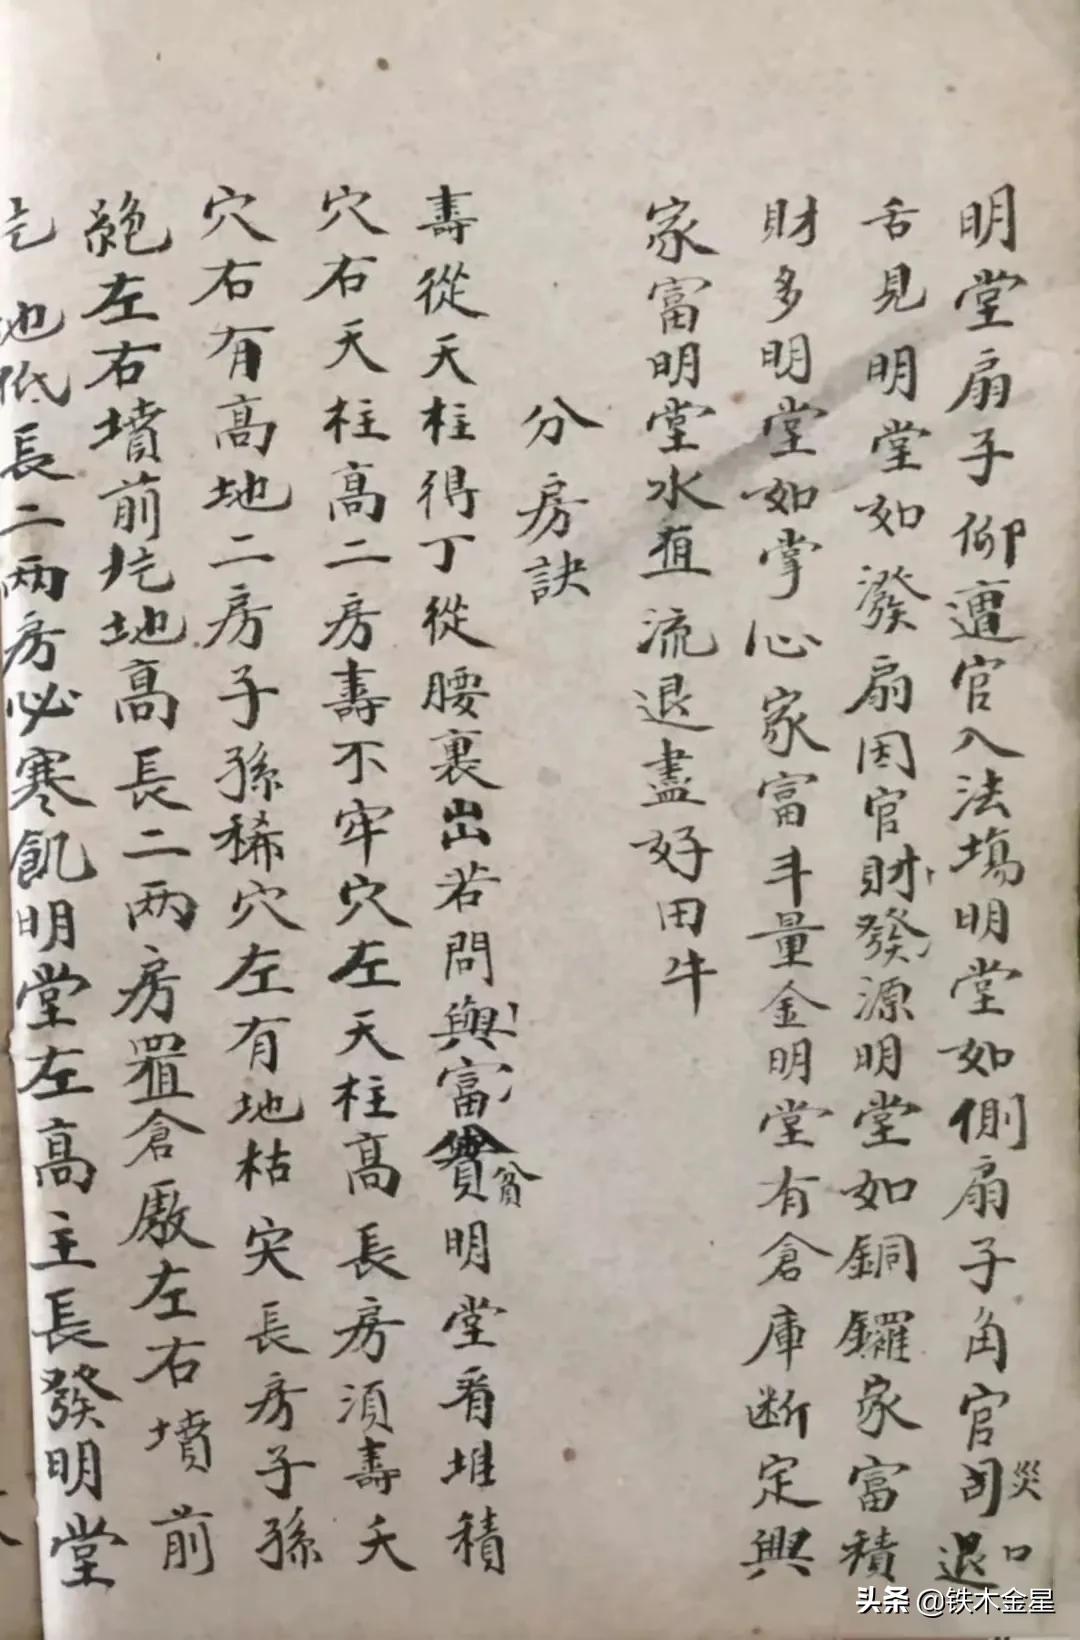 明堂扇子仰遭官入法塲明堂如側扇子角官司災退口
舌見明堂如潑扇因官財發源明堂如銅鑼家富積
財多明堂如掌心家富斗量金明堂有倉庫断定興
家富明堂水直流退盡好田牛
分房訣
壽從天柱得丁從腰裏出若問興富貧明堂看堆積
穴右天柱高二房壽不牢穴左天柱高長房須壽夭
穴右有高地二房子孫稀穴左有地枯突長房子孫
絶左右墳前圪地高長二両房置倉廒左右墳前
圪地低長二両房必寒飢明堂左高主長發明堂
头条 @铁木金星